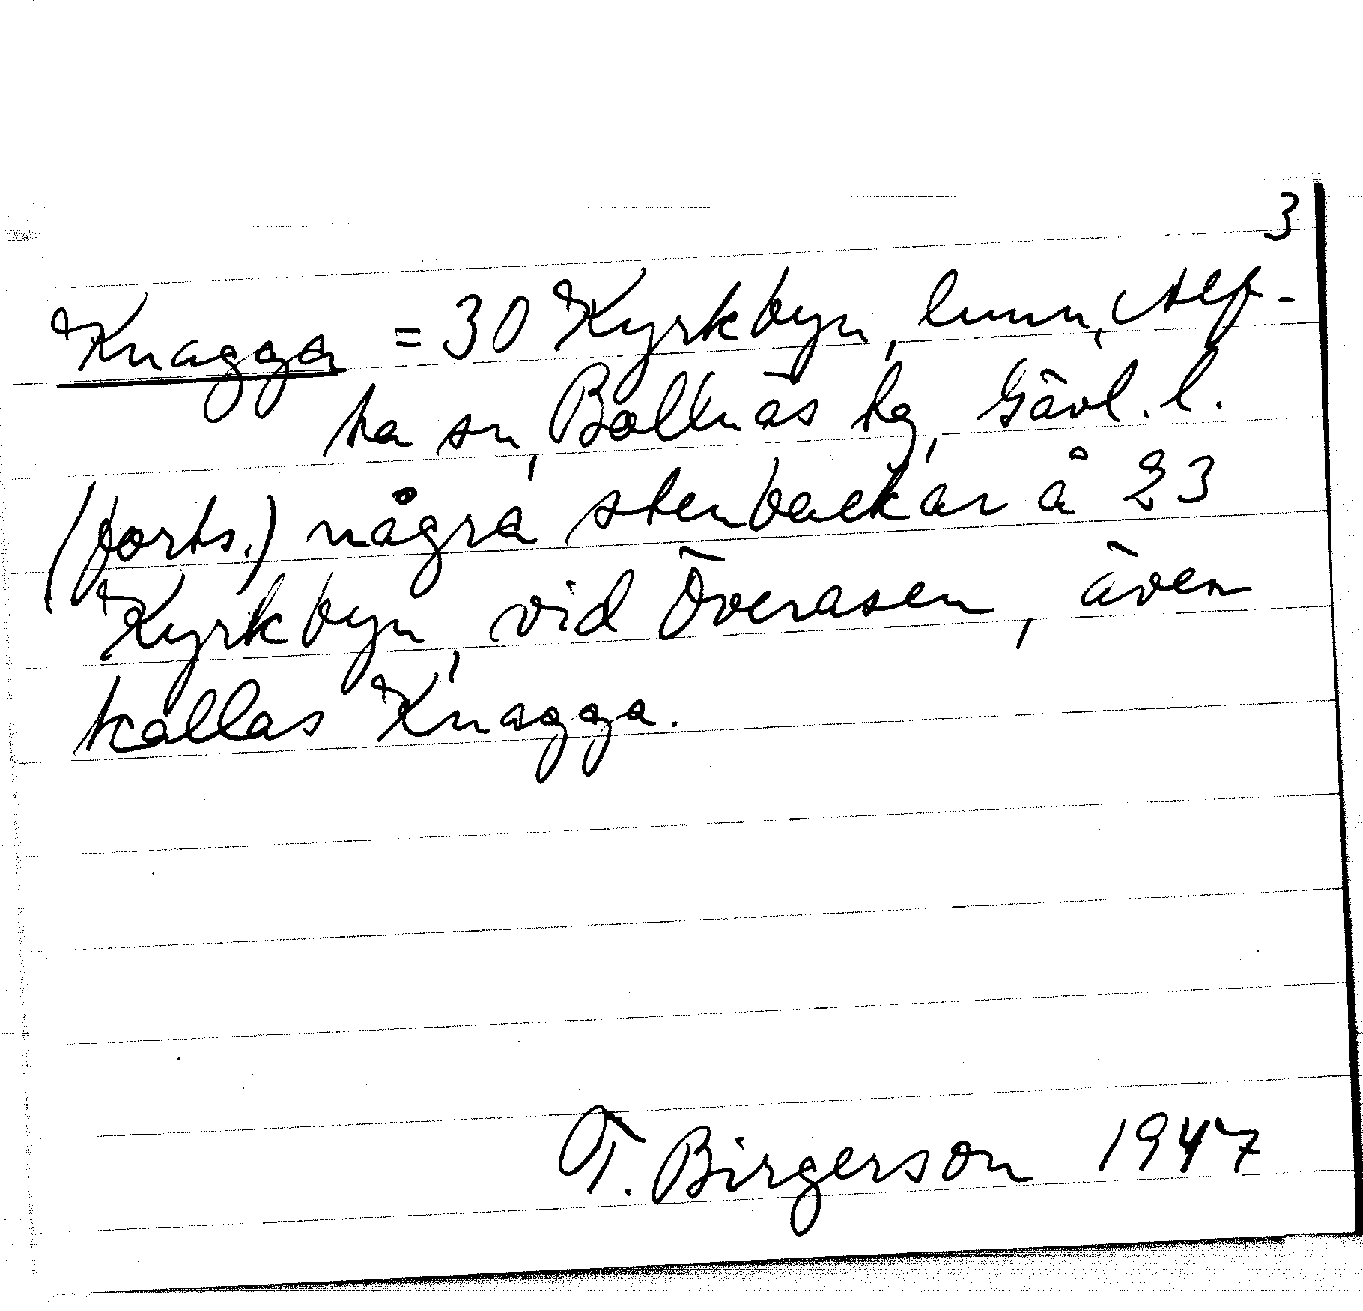 3
Knagga = 30 Kyrkbyn, lunn, Alf-
ta sn, Bollnäs hg, Gävl. l.
(forts.) några stenbackar å 23
Kyrkbyn, vid Överåsen, även
kallas Knagga.
T. Birgerson 1947